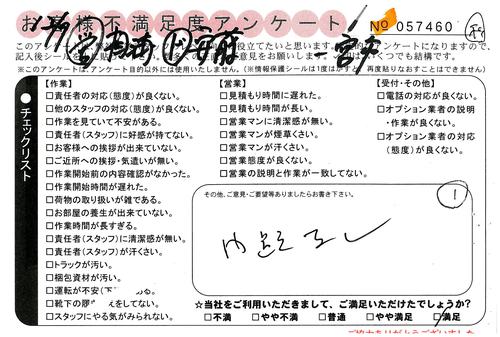 お客様不満足度アンケート
No 057460
記入後シールを
つでも結構です。
※このアンケートは、アンケート目的以外には使用いたしません。(※情報保護シールは1度はがすと、再度貼りなおすことはできません)
チェックリスト
【作業】
□責任者の対応(態度)が良くない。
□他のスタッフの対応(態度)が良くない。
□作業を見ていて不安がある。
□責任者(スタッフ)に好感が持てない。
□お客様への挨拶が出来ていない。
□ご近所への挨拶・気遣いが無い。
□作業開始前の内容確認がなかった。
□作業開始時間が遅れた。
□荷物の取り扱いが雑である。
□お部屋の養生が出来ていない。
□作業時間が長すぎる。
□責任者(スタッフ)に清潔感が無い。
□責任者(スタッフ)が汗くさい。
□トラックが汚い。
□梱包資材が汚い。
□運転が不安(下
□靴下の
をしない。
□スタッフにやる気がみられない。
【営業】
□見積もり時間に遅れた。
□見積もり時間が長い。
□営業マンに清潔感が無い。
□営業マンが煙草くさい。
□営業マンが汗くさい。
□営業態度が良くない。
□営業の説明と作業が一致してない。
【受付・その他】
□電話の対応が良くない。
□オプション業者の説明
・作業が良くない。
□オプション業者の対応
(態度)が良くない。
その他、ご意見・ご要望等ありましたらお書き下さい。
1
問題なし
☆当社をご利用いただきまして、ご満足いただけたでしょうか?
□不満 □やや不満 □普通 □やや満足 □満足
ご協力ありがとうございました